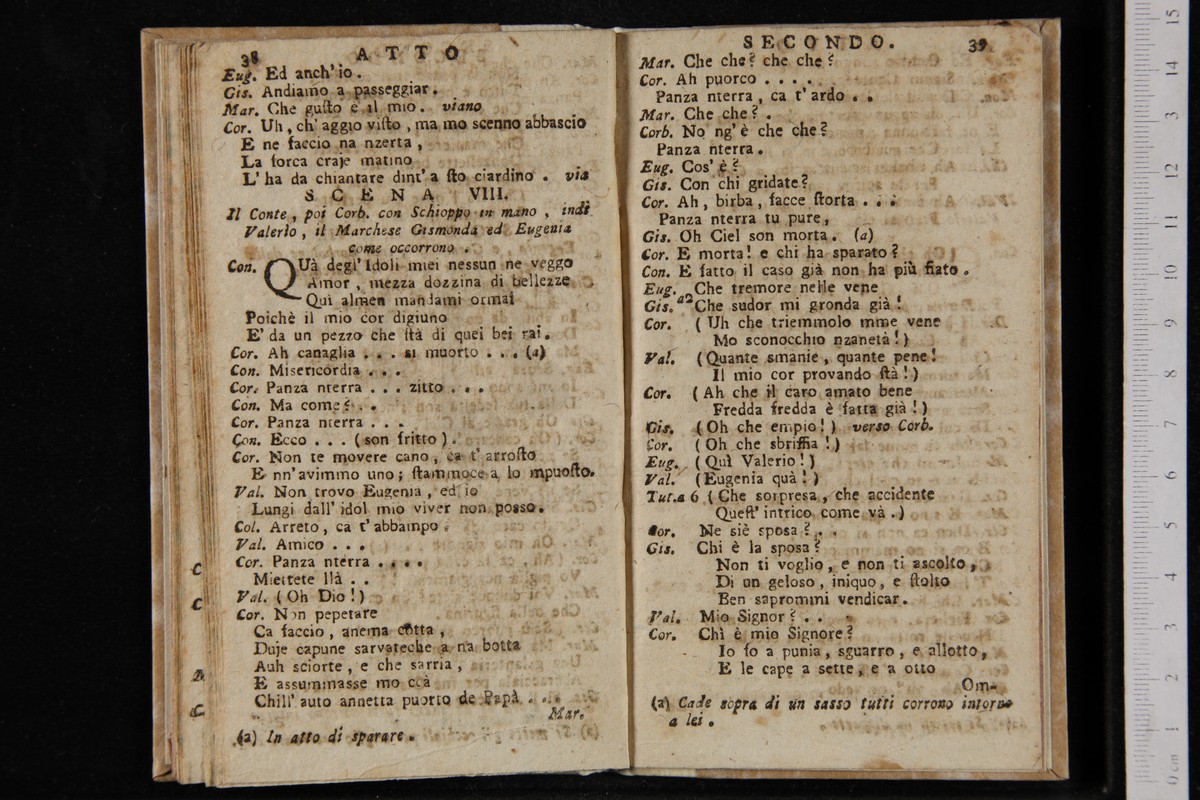 38 ATTO
Eug. Ed anch' io.
Gis. Andiamo a passeggiar.
Mar. Che guſto è il mio. viano
Cor. Uh, ch' aggio viſto, ma mo scenno abbascio
E ne faccio na nzerta,
La forca craje matino
L' ha da chiantare dint' a ſto ciardino. via
SCENA VIII.
Il Conte, poi Corb. con Schioppo in mano, indi
Valerio, il Marchese Gismonda ed Eugenia
come occorrono.
Con. QUà degl' Idoli miei nessun ne veggo
Amor, mezza dozzina di bellezze
Quì almen mandami ormai
Poichè il mio cor digiuno
E' da un pezzo che ſtà di quei bei rai.
Cor. Ah canaglia . . . si muorto . . . (a)
Con. Misericordia . . .
Cor. Panza nterra . . . zitto . . .
Con. Ma come? . .
Cor. Panza nterra . . .
Con. Ecco . . . (son fritto).
Cor. Non te movere cano, ca t' arroſto
E nn' avimmo uno; ſtammoce a lo mpuoſto.
Val. Non trovo Eugenia, ed io
Lungi dall' idol mio viver non posso.
Col. Arreto, ca t' abbampo.
Val. Amico . . .
Cor. Panza nterra . . . .
Miettete llà . .
Val. (Oh Dio!)
Cor. Non pepetare
Ca faccio, anema cotta,
Duje capune sarvateche a na botta
Auh sciorte, e che sarria,
E assummasse mo ccà
Chill' auto annetta puorto de Papà . . .
Mar.
(a) In atto di sparare.
SECONDO. 39
Mar. Che che? che che?
Cor. Ah puorco . . . .
Panza nterra, ca t' ardo . .
Mar. Che che? .
Corb. No ng' è che che?
Panza nterra.
Eug. Cos' è?
Gis. Con chi gridate?
Cor. Ah, birba, facce ſtorta . . .
Panza nterra tu pure,
Gis. Oh Ciel son morta. (a)
Cor. E morta! e chi ha sparato?
Con. E fatto il caso già non ha più fiato.
Eug. Che tremore nelle vene
Gis. a2 Che sudor mi gronda già!
Cor. (Uh che triemmolo mme vene
Mo sconocchio nzanetà!)
Val. (Quante smanie, quante pene!
Il mio cor provando ſtà!)
Cor. (Ah che il caro amato bene
Fredda fredda è fatta già!)
Gis. (Oh che empio!) verso Corb.
Cor. (Oh che sbriffia!)
Eug. (Quì Valerio!)
Val. (Eugenia quà!)
Tut.a 6 (Che sorpresa, che accidente
Queſt' intrico come và.)
Cor. Ne siè sposa? . .
Gis. Chi è la sposa?
Non ti voglio, e non ti ascolto,
Di un geloso, iniquo, e ſtolto
Ben saprommi vendicar.
Val. Mio Signor? . .
Cor. Chì è mio Signore?
Io so a punia, sguarro, e allotto,
E le cape a sette, e a otto
Om-
(a) Cade sopra di un sasso tutti corrono intorno
a lei.